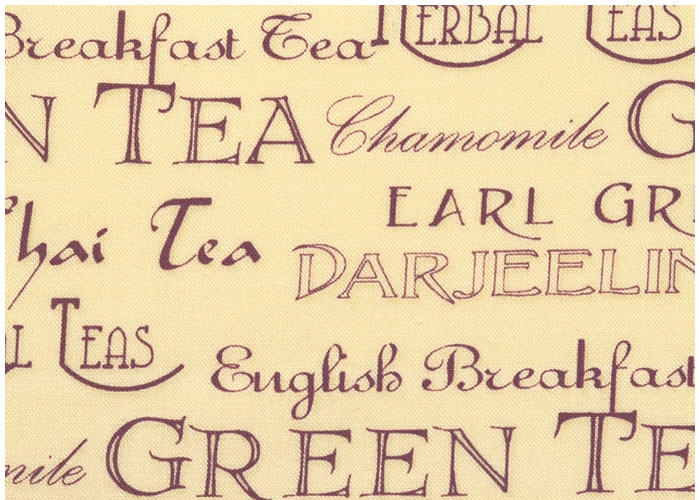 Breakfast Tea HERBAL TEAS
N TEA Chamomile G
Chai Tea EARL GR
DARJEELIN
AL TEAS English Breakfast
mile GREEN TE